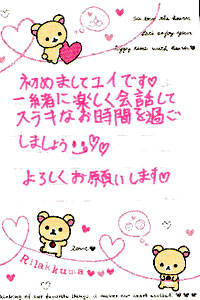 is love the hearts
Let's enjoy your
Happy time with hearts
初めましてユイです♡
一緒に楽しく会話して
ステキなお時間を過ご
しましょう
よろしくお願いします♡
love
Rilakkuma
thinking of our favorite things, it makes our heart excited.